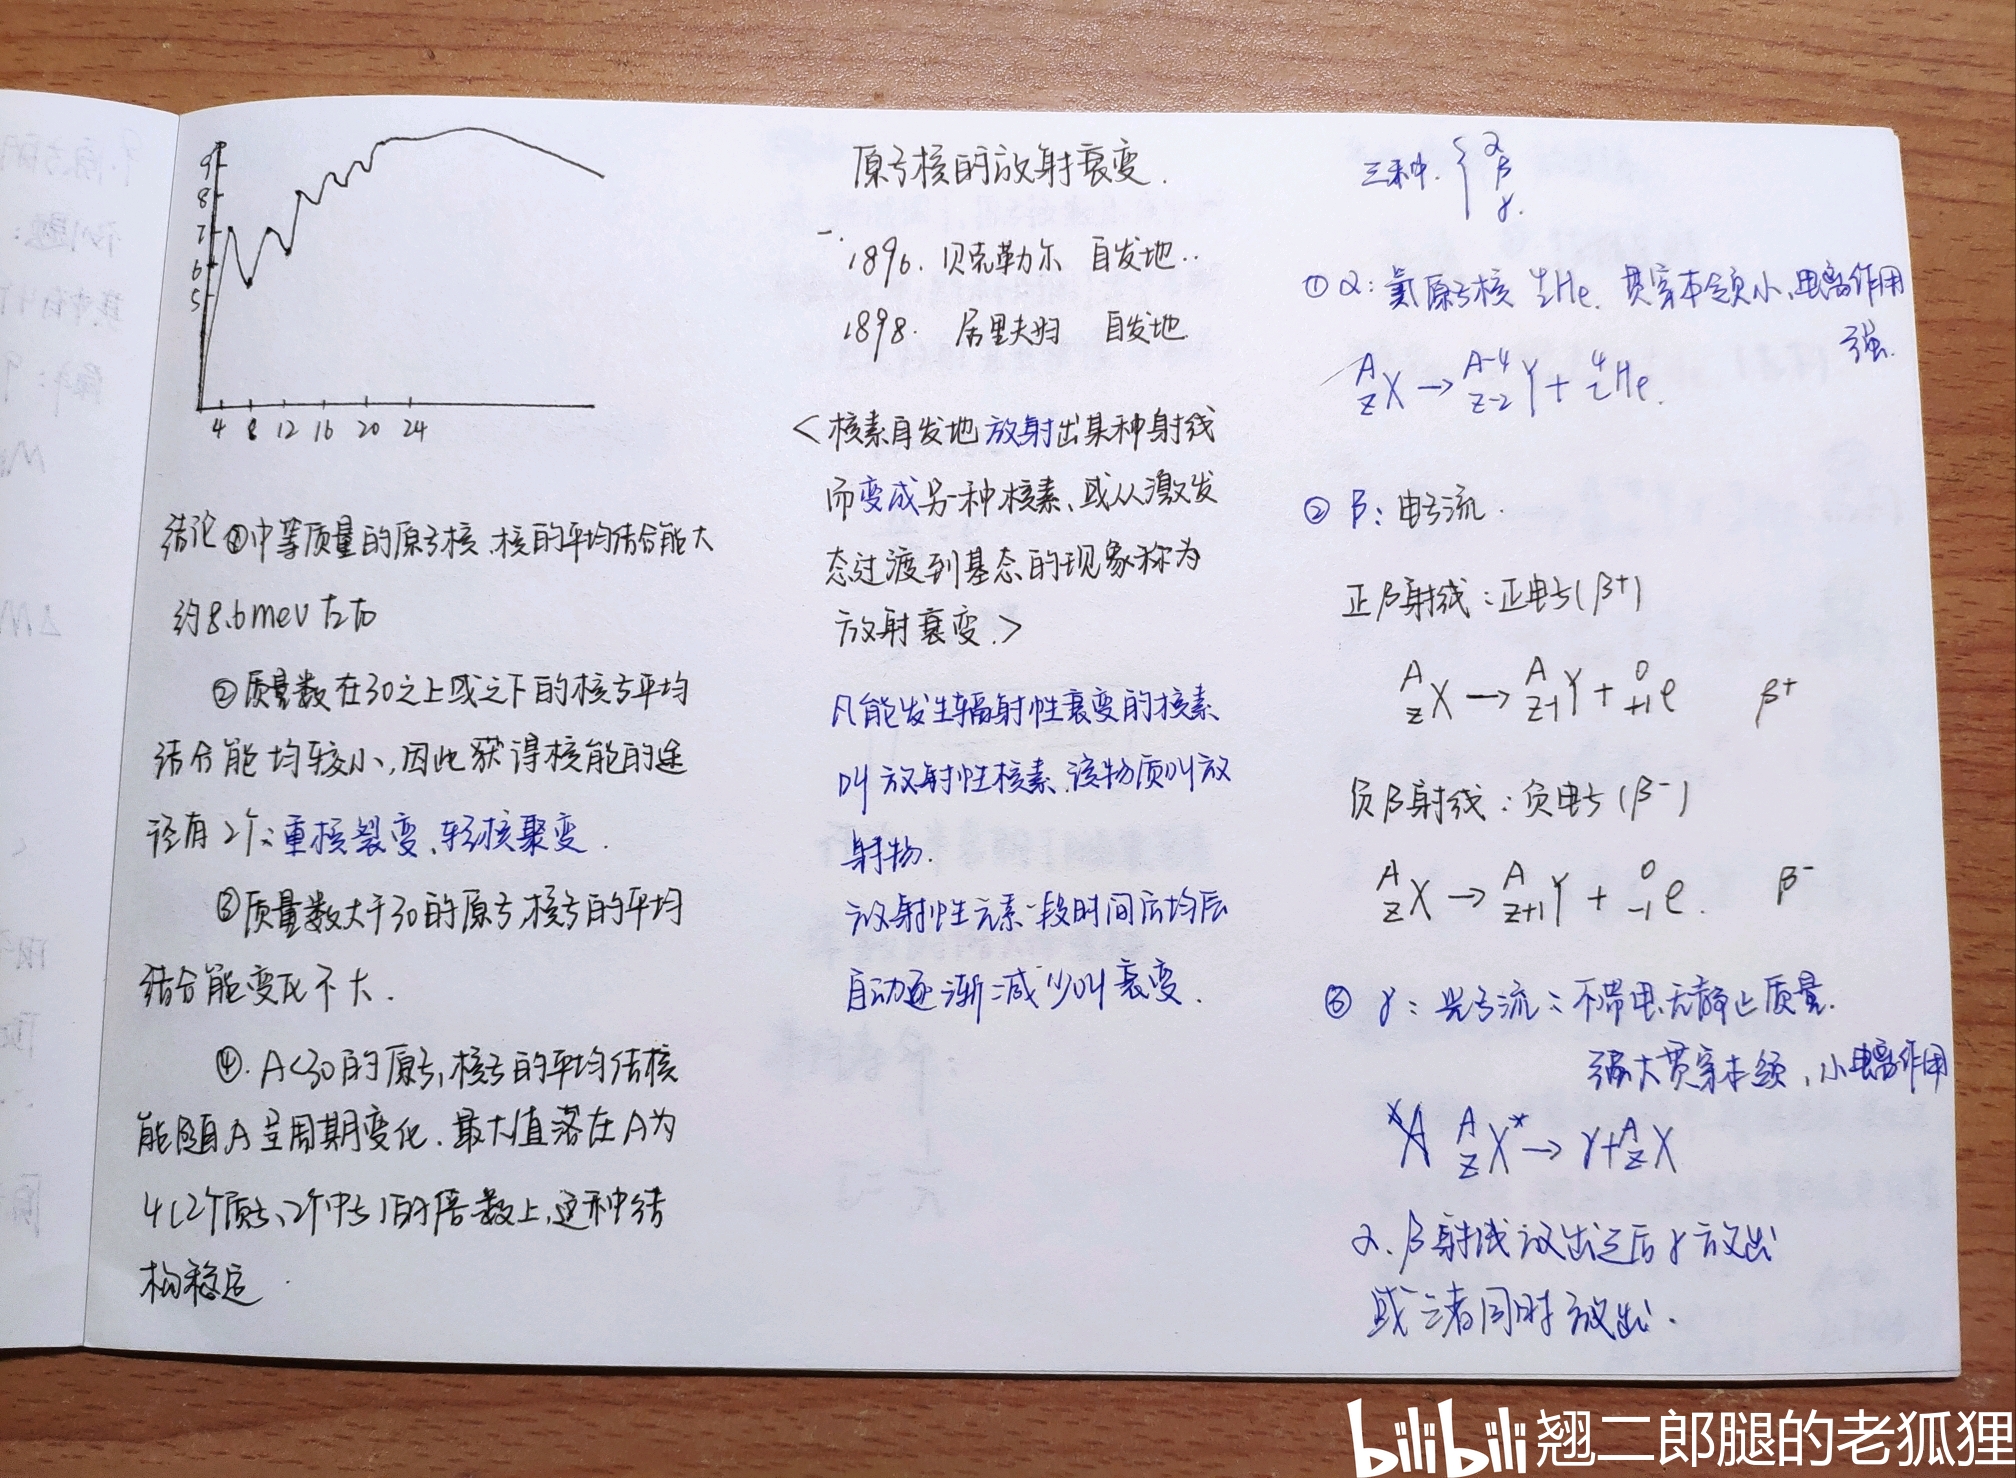 9
8
7
6
5
4 8 12 16 20 24
结论①中等质量的原子核、核的平均结合能大
约8.6mev左右
②质量数在30之上或之下的核子平均
结合能均较小,因此获得核能的途
径有2个:重核裂变、轻核聚变.
③质量数大于30的原子,核子的平均
结合能变化不大.
④.A<30的原子,核子的平均结核
能随A呈周期变化.最大值落在A为
4(2个质子、2个中子)的倍数上,这种结
构稳定.
原子核的放射衰变.
一.
1896.贝克勒尔 自发地..
1898.居里夫妇 自发地
<核素自发地放射出某种射线
而变成另一种核素、或从激发
态过渡到基态的现象称为
放射衰变.>
凡能发生辐射性衰变的核素
叫放射性核素.该物质叫放
射物.
放射性元素一段时间后均后
自动逐渐减少叫衰变.
三种.{α
β
γ.
①α:氦原子核 ⁴₂He.贯穿本领小、电离作用
强.
ᴬ_ZX→ᴬ⁻⁴_Z-2Y+⁴₂He.
②β:电子流.
正β射线:正电子(β+)
ᴬ_ZX→ᴬ_Z-1Y+⁰₊₁e β+
负β射线:负电子(β-)
ᴬ_ZX→ᴬ_Z+1Y+⁰₋₁e. β-
③γ:光子流:不带电、无静止质量.
强大贯穿本领,小电离作用
ᴬ_ZX*→γ+ᴬ_ZX
α、β射线放出之后γ放出
或三者同时放出.
bilibili 翘二郎腿的老狐狸